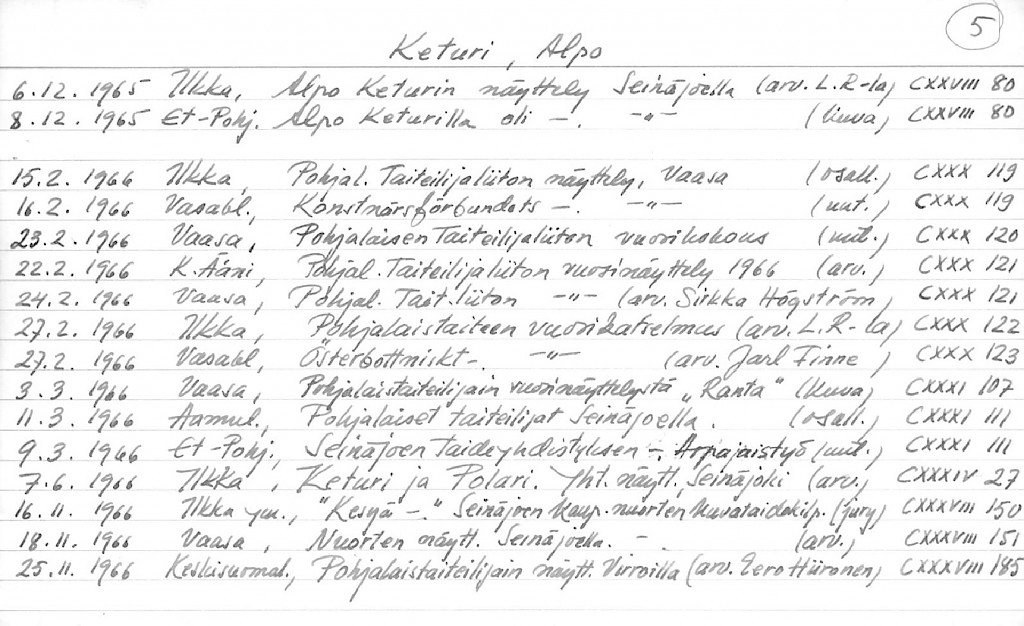 5
Keturi, Alpo
6.12. 1965 Ilkka, Alpo Keturin näyttely Seinäjoella (arv. L.R-la) CXXVIII 80
8.12. 1965 Et-Pohj. Alpo Keturilla oli -. -"- (kuva) CXXVIII 80
15.2. 1966 Ilkka, Pohjal. Taiteilijaliiton näyttely, Vaasa (osall.) CXXX 119
16.2. 1966 Vasabl., Konstnärsförbundets -. -"- (uut.) CXXX 119
23.2. 1966 Vaasa, Pohjalaisen Taiteilijaliiton vuosikokous (uut.) CXXX 120
22.2. 1966 K. Ääni, Pohjal. Taiteilijaliiton vuosinäyttely 1966 (arv.) CXXX 121
24.2. 1966 Vaasa, Pohjal. Tait.liiton -"- (arv. Sirkka Högström) CXXX 121
27.2. 1966 Ilkka, Pohjalaistaiteen vuosikatselmus (arv. L.R-la) CXXX 122
27.2. 1966 Vasabl, Österbottniskt -. -"- (arv. Jarl Finne) CXXX 123
3.3. 1966 Vaasa, Pohjalaistaiteilijain vuosinäyttelystä "Ranta" (kuva) CXXXI 107
11.3. 1966 Aamul., Pohjalaiset taiteilijat Seinäjoella. (osall.) CXXXI 111
9.3. 1966 Et-Pohj., Seinäjoen Taideyhdistyksen -, Arpajaistyö (uut.) CXXXI 111
7.6. 1966 Ilkka, Keturi ja Polari. Yht. näytt., Seinäjoki (arv.) CXXXIV 27
16.11. 1966 Ilkka ym., "Kesyä -." Seinäjoen kaup. nuorten kuvataidekilp. (jury) CXXXVIII 150
18.11. 1966 Vaasa, Nuorten näytt. Seinäjoella. -. (arv.) CXXXVIII 151
25.11. 1966 Keskisuomal., Pohjalaistaiteilijain näytt. Virroilla (arv. Eero Hiironen) CXXXVIII 185